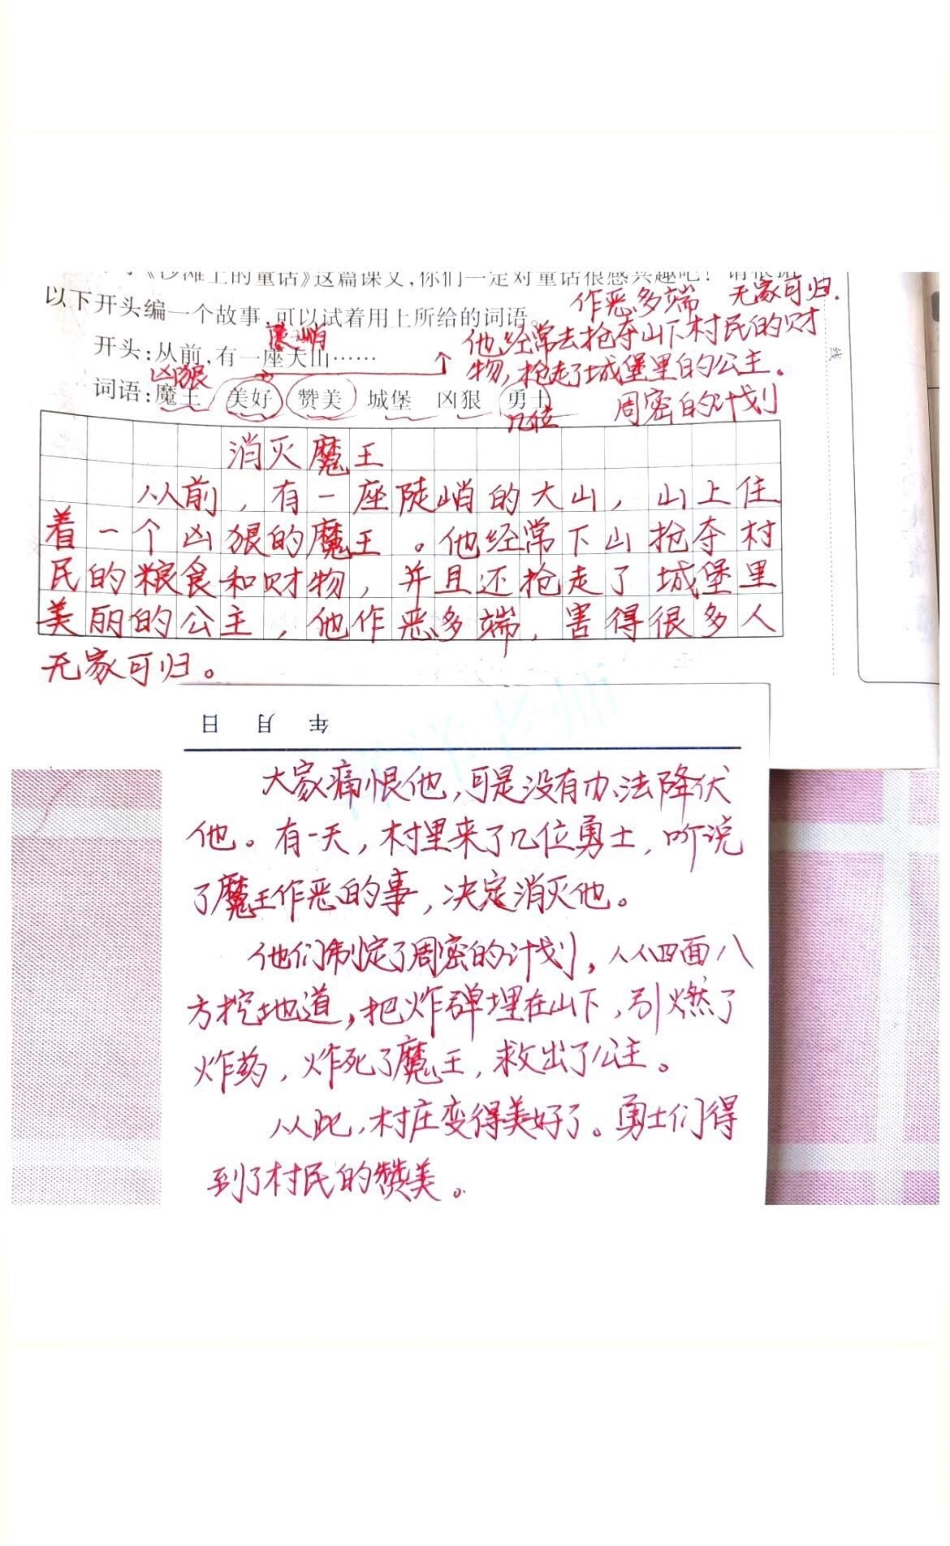 《沙滩上的童话》这篇课文,你们一定对童话很感兴趣吧!请根据
以下开头编一个故事,可以试着用上所给的词语。
作恶多端 无家可归.
陡峭
开头:从前,有一座大山……
他经常去抢夺山下村民的财
物,抢走了城堡里的公主.
凶狠
词语:魔王 美好 赞美 城堡 凶狠 勇士
几位
周密的计划
线
消灭魔王
从前,有一座陡峭的大山,山上住
着一个凶狠的魔王。他经常下山抢夺村
民的粮食和财物,并且还抢走了城堡里
美丽的公主,他作恶多端,害得很多人
无家可归。
年 月 日
大家痛恨他,可是没有办法降伏
他。有一天,村里来了几位勇士,听说
了魔王作恶的事,决定消灭他。
他们制定了周密的计划,从四面八
方挖地道,把炸弹埋在山下,引燃了
炸药,炸死了魔王,救出了公主。
从此,村庄变得美好了。勇士们得
到了村民的赞美。